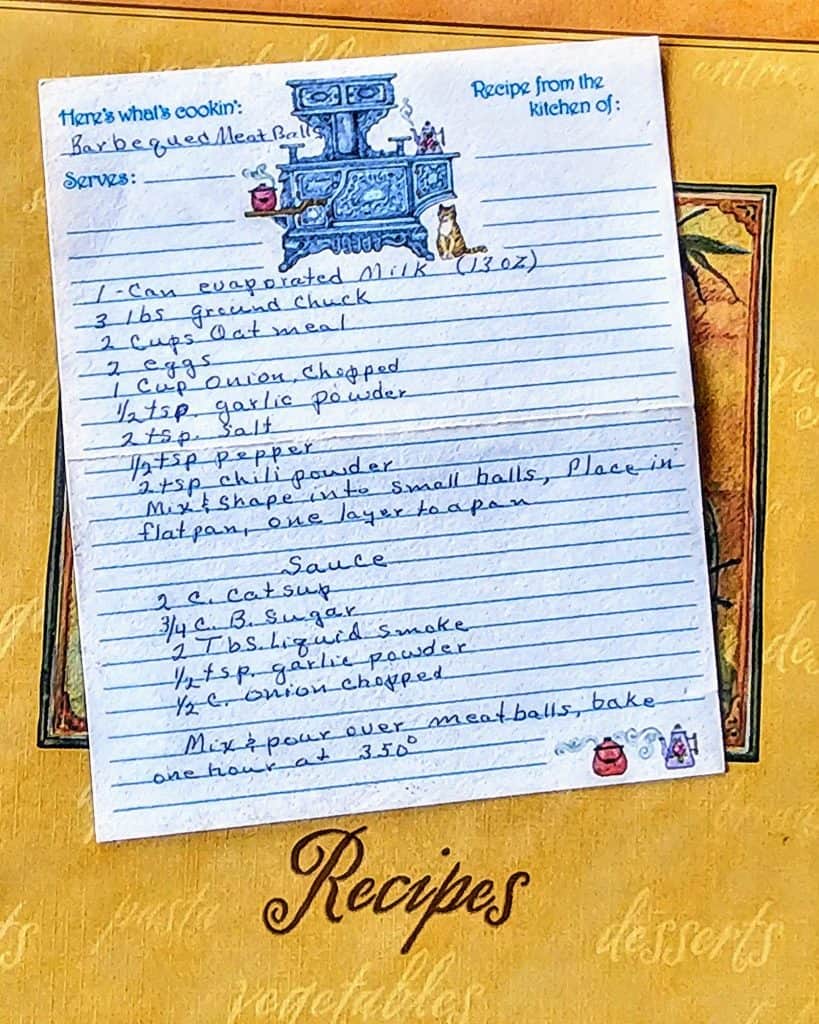 Here's what's cookin':
Recipe from the
kitchen of:
Barbequed Meat Balls
Serves:
1 - Can evaporated Milk (13 oz)
3 lbs ground chuck
2 Cups Oatmeal
2 eggs
1 Cup Onion, Chopped
1/2 tsp. garlic powder
2 tsp. Salt
1/2 tsp pepper
2 tsp chili powder
Mix & Shape into small balls, Place in
flat pan, one layer to a pan
Sauce
2 c. catsup
3/4 c. B. Sugar
2 Tbs. Liquid Smoke
1/2 tsp. garlic powder
1/2 c. onion chopped
Mix & pour over meatballs, bake
one hour at 350°
Recipes
pasta
desserts
vegetables